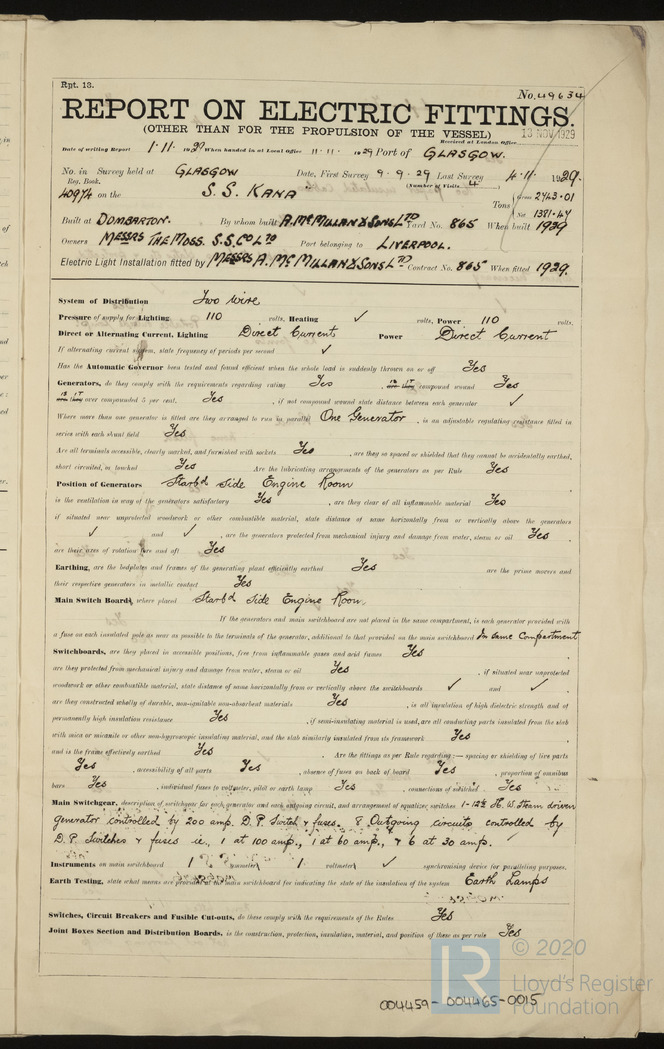 Rpt. 13.
No. 49634
REPORT ON ELECTRIC FITTINGS.
(OTHER THAN FOR THE PROPULSION OF THE VESSEL)
Received at London Office 13 NOV 1929
Date of writing Report 1.11. 1930 When handed in at Local Office 11.11. 1929 Port of GLASGOW.
No. in Survey held at GLASGOW Date, First Survey 9.9.29 Last Survey 4.11. 1929.
Reg. Book. (Number of Visits 4)
40974 on the S.S. KANA Tons Gross 2743.01 Net 1381.47
Built at DOMBARTON. By whom built A. McMILLAN & SONS LTD Yard No. 865 When built 1929
Owners MESSRS THE MOSS. S.S. CO LTD Port belonging to LIVERPOOL.
Electric Light Installation fitted by MESSRS A. McMILLAN & SONS LTD Contract No. 865 When fitted 1929.
System of Distribution Two wire
Pressure of supply for Lighting 110 volts, Heating ✓ volts, Power 110 volts.
Direct or Alternating Current, Lighting Direct Current Power Direct Current
If alternating current system, state frequency of periods per second ✓
Has the Automatic Governor been tested and found efficient when the whole load is suddenly thrown on or off Yes
Generators, do they comply with the requirements regarding rating Yes, is IT compound wound Yes
is IT over compounded 5 per cent. Yes, if not compound wound state distance between each generator ✓
Where more than one generator is fitted are they arranged to run in parallel One Generator, is an adjustable regulating resistance fitted in
series with each shunt field Yes
Are all terminals accessible, clearly marked, and furnished with sockets Yes, are they so spaced or shielded that they cannot be accidentally earthed,
short circuited, or touched Yes Are the lubricating arrangements of the generators as per Rule Yes
Position of Generators Starbd Side Engine Room
is the ventilation in way of the generators satisfactory Yes, are they clear of all inflammable material Yes
if situated near unprotected woodwork or other combustible material, state distance of same horizontally from or vertically above the generators
✓ and ✓, are the generators protected from mechanical injury and damage from water, steam or oil Yes
are their axes of rotation fore and aft Yes
Earthing, are the bedplates and frames of the generating plant efficiently earthed Yes are the prime movers and
their respective generators in metallic contact Yes
Main Switch Boards, where placed Starbd Side Engine Room,
If the generators and main switchboard are not placed in the same compartment, is each generator provided with
a fuse on each insulated pole as near as possible to the terminals of the generator, additional to that provided on the main switchboard In same Compartment
Switchboards, are they placed in accessible positions, free from inflammable gases and acid fumes Yes
are they protected from mechanical injury and damage from water, steam or oil Yes, if situated near unprotected
woodwork or other combustible material, state distance of same horizontally from or vertically above the switchboards ✓ and ✓
are they constructed wholly of durable, non-ignitable non-absorbent materials Yes, is all insulation of high dielectric strength and of
permanently high insulation resistance Yes, if semi-insulating material is used, are all conducting parts insulated from the slab
with mica or micanite or other non-hygroscopic insulating material, and the slab similarly insulated from its framework Yes
and is the frame effectively earthed Yes. Are the fittings as per Rule regarding:— spacing or shielding of live parts
Yes, accessibility of all parts Yes, absence of fuses on back of board Yes, proportion of omnibus
bars Yes, individual fuses to voltmeter, pilot or earth lamp Yes, connections of switches Yes
Main Switchgear, description of switchgear for each generator and each outgoing circuit, and arrangement of equalizer switches 1-12½ K.W. Steam driven
generator controlled by 200 amp. D.P. Switch & fuses. 8 Outgoing circuits controlled by
D.P. Switches & fuses ie., 1 at 100 amp., 1 at 60 amp., & 6 at 30 amp.
Instruments on main switchboard 1 ammeter 1 voltmeter ✓ synchronising device for paralleling purposes.
Earth Testing, state what means are provided at the main switchboard for indicating the state of the insulation of the system Earth Lamps
Switches, Circuit Breakers and Fusible Cut-outs, do these comply with the requirements of the Rules Yes
Joint Boxes Section and Distribution Boards, is the construction, protection, insulation, material, and position of these as per rule Yes
© 2020
LR Lloyd's Register
Foundation
004459-004465-0015